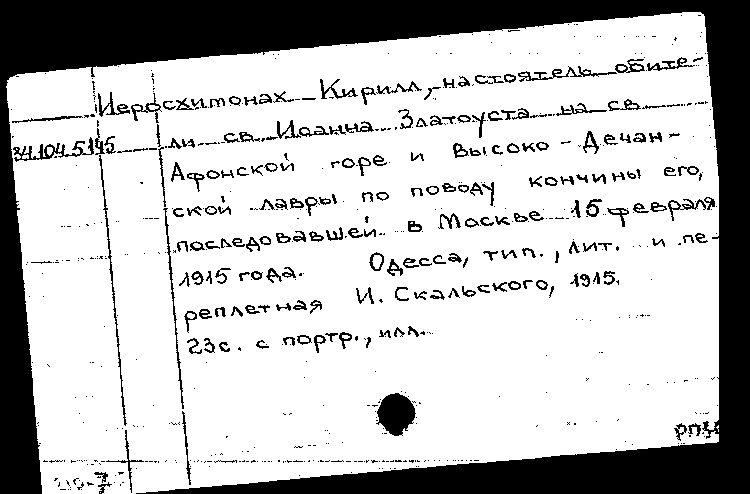 Иеросхимонах Кирилл, настоятель обите-
34.104.5.145 ли св. Иоанна Златоуста на св.
Афонской горе и Высоко-Дечан-
ской лавры по поводу кончины его,
последовавшей в Москве 15 февраля
1915 года. Одесса, тип., лит. и пе-
реплетная И. Скальского, 1915.
23с. с портр., илл.